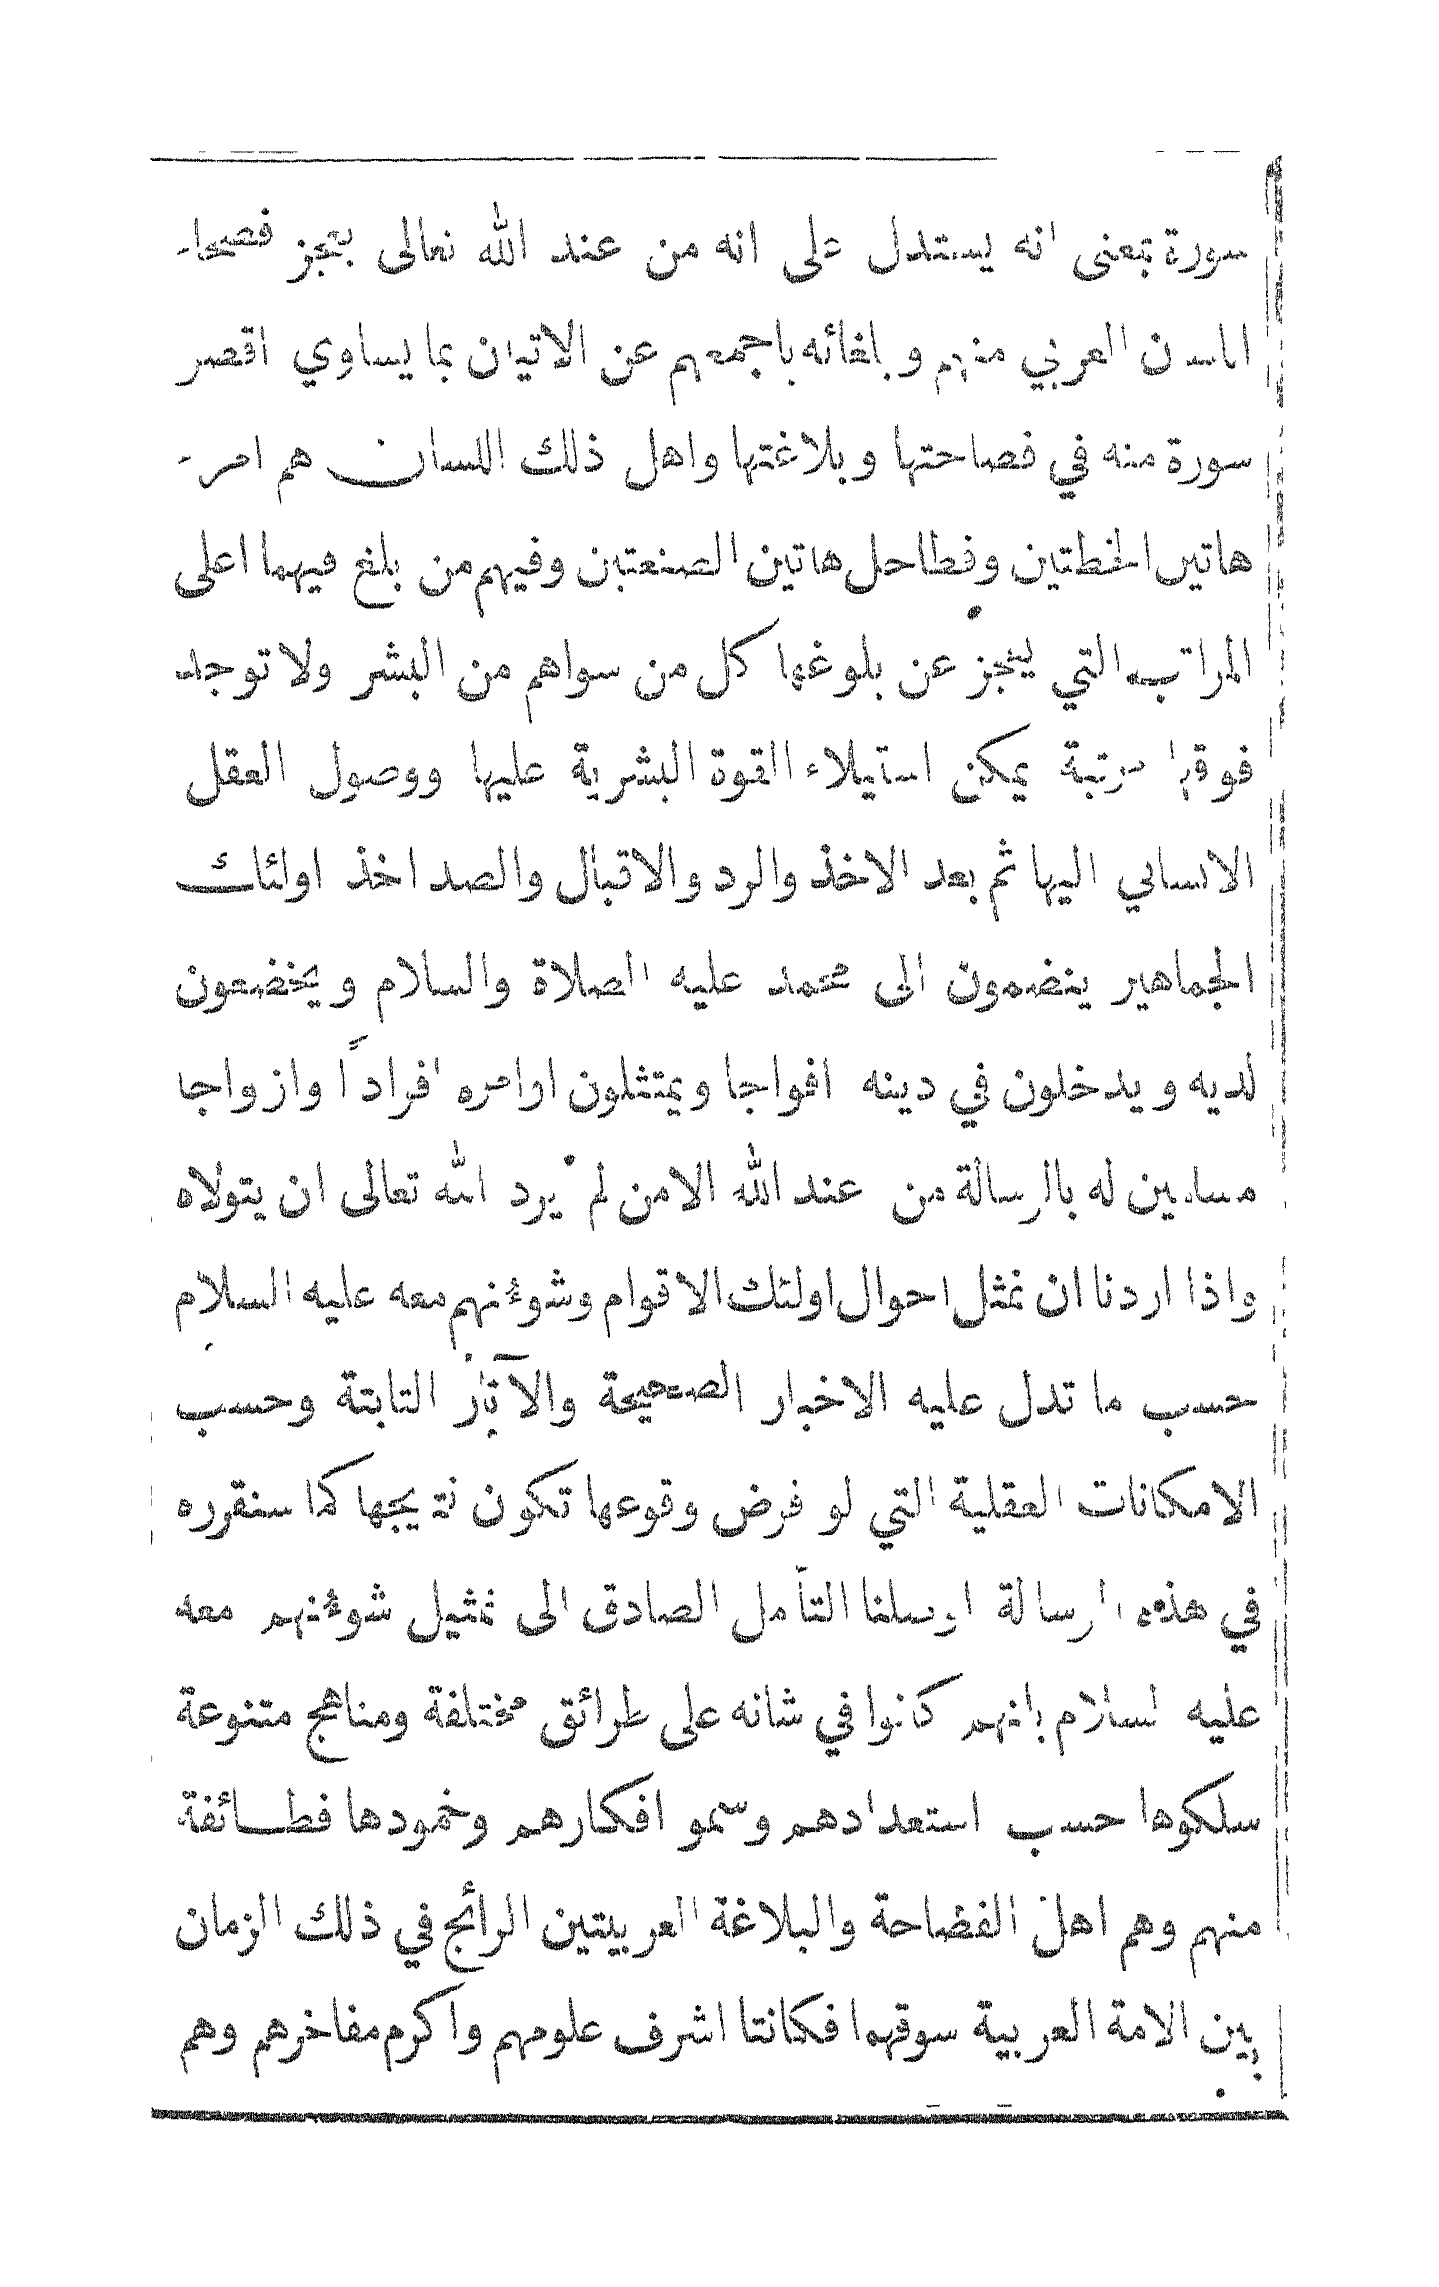 سورة بمعنى انه يستدل على انه من عند الله تعالى بعجز فصحاء
اللسان العربي منهم وبلغائه باجمعهم عن الاتيان بما يساوي اقصر
سورة منه في فصاحتها وبلاغتها واهل ذلك اللسان هم امراء
هاتين الخطتين وفطاحل هاتين الصنعتين وفيهم من بلغ فيهما اعلى
المراتب التي يعجز عن بلوغها كل من سواهم من البشر ولا توجد
فوقها مرتبة يمكن استيلاء القوة البشرية عليها ووصول العقل
الانساني اليها ثم بعد الاخذ والرد والاقبال والصد اخذ اولئك
الجماهير ينضمون الى محمد عليه الصلاة والسلام ويخضعون
لديه ويدخلون في دينه افواجا ويمتثلون اوامره افرادًا وازواجا
مسلمين له بالرسالة من عند الله الا من لم يرد الله تعالى ان يتولاه
واذا اردنا ان نمثل احوال اولئك الاقوام وشوءنهم معه عليه السلام
حسب ما تدل عليه الاخبار الصحيحة والآثار الثابتة وحسب
الامكانات العقلية التي لو فرض وقوعها تكون نتيجها كما سنقرره
في هذه الرسالة اوصلنا التأمل الصادق الى تمثيل شوءنهم معه
عليه السلام بانهم كانوا في شانه على طرائق مختلفة ومناهج متنوعة
سلكوها حسب استعدادهم وسمو افكارهم وخمودها فطائفة
منهم وهم اهل الفصاحة والبلاغة العربيتين الرائج في ذلك الزمان
بين الامة العربية سوقهما فكانتا اشرف علومهم واكرم مفاخرهم وهم